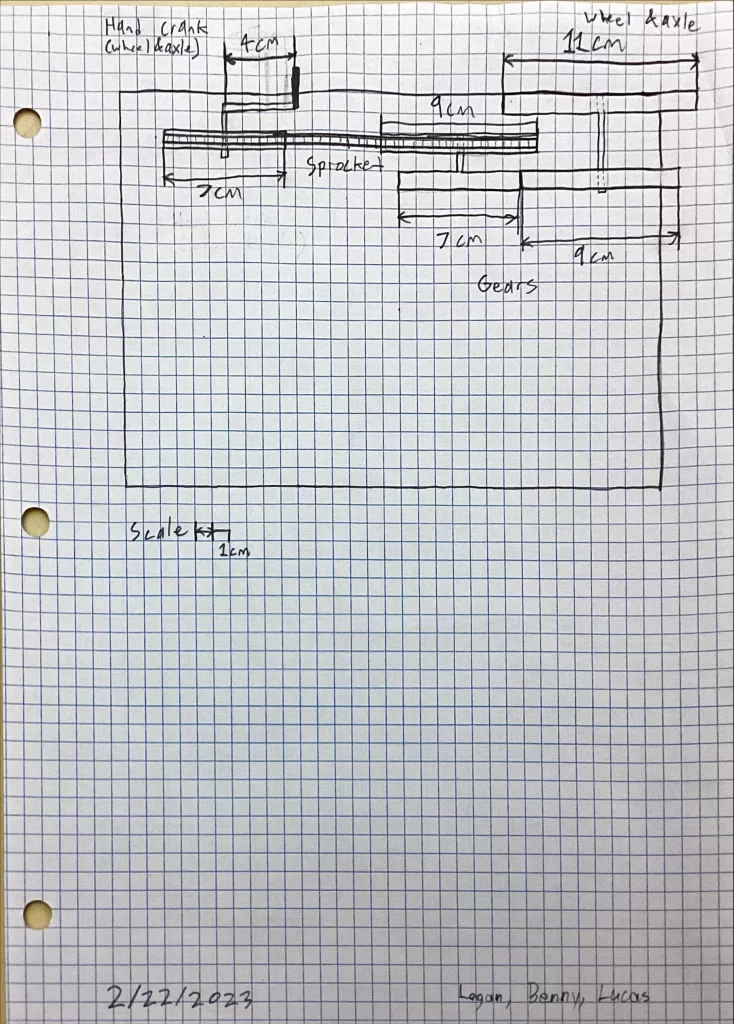 Hand Crank
(wheel &axle)
4cm
wheel &axle
11cm
9cm
Sprocket
7cm
7cm
9cm
Gears
Scale
1cm
2/22/2023
Logan, Benny, Lucas